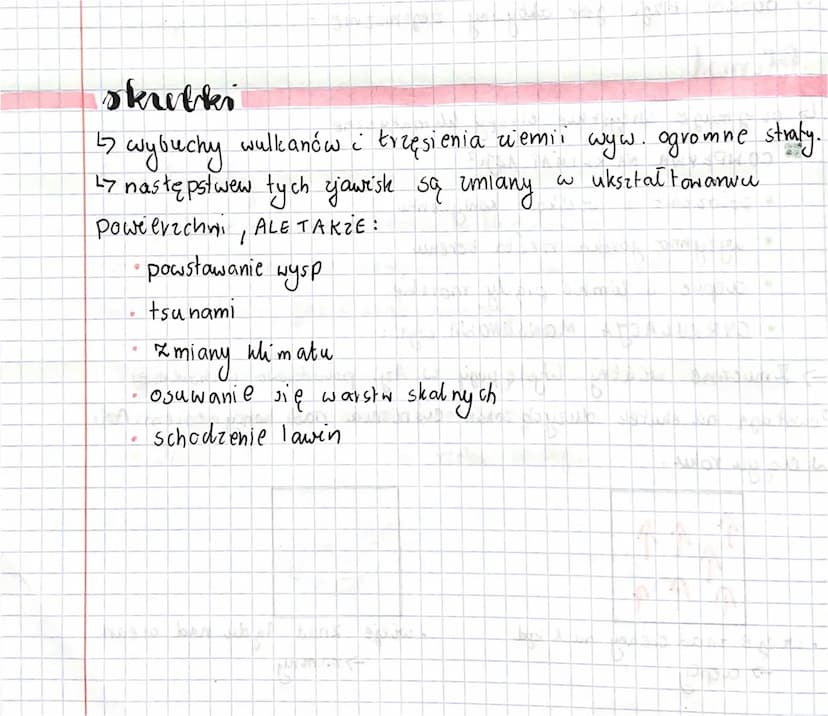 skutki
↳ wybuchy wulkanów i trzęsienia ziemii wyw. ogromne straty.
↳ następstwew tych zjawisk są zmiany w ukształtowaniu
powierzchni, ALE TAKŻE:
• powstawanie wysp
• tsunami
• zmiany klimatu
• osuwanie się warstw skalnych
• schodzenie lawin